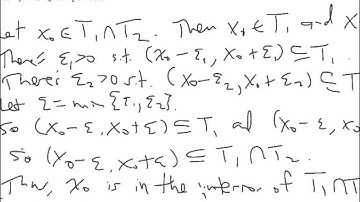 Let x₀ ∈ T₁ ∩ T₂. Then x₀ ∈ T₁ and x
There's ε₁>0 s.t. (x₀-ε₁, x₀+ε₁) ⊆ T₁.
There's ε₂>0 s.t. (x₀-ε₂, x₀+ε₂) ⊆ T
Let ε = min {ε₁, ε₂}.
So (x₀-ε, x₀+ε) ⊆ T₁ and (x₀-ε, x₀
So (x₀-ε, x₀+ε) ⊆ T₁ ∩ T₂.
Thus, x₀ is in the interior of T₁ ∩ T